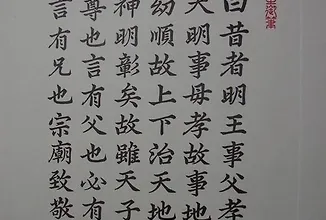 曰昔者明王事父孝
天明事母孝故事地
幼順故上下治天地
神明彰矣故雖天子
尊也言有父也必有
言有兄也宗廟致敬